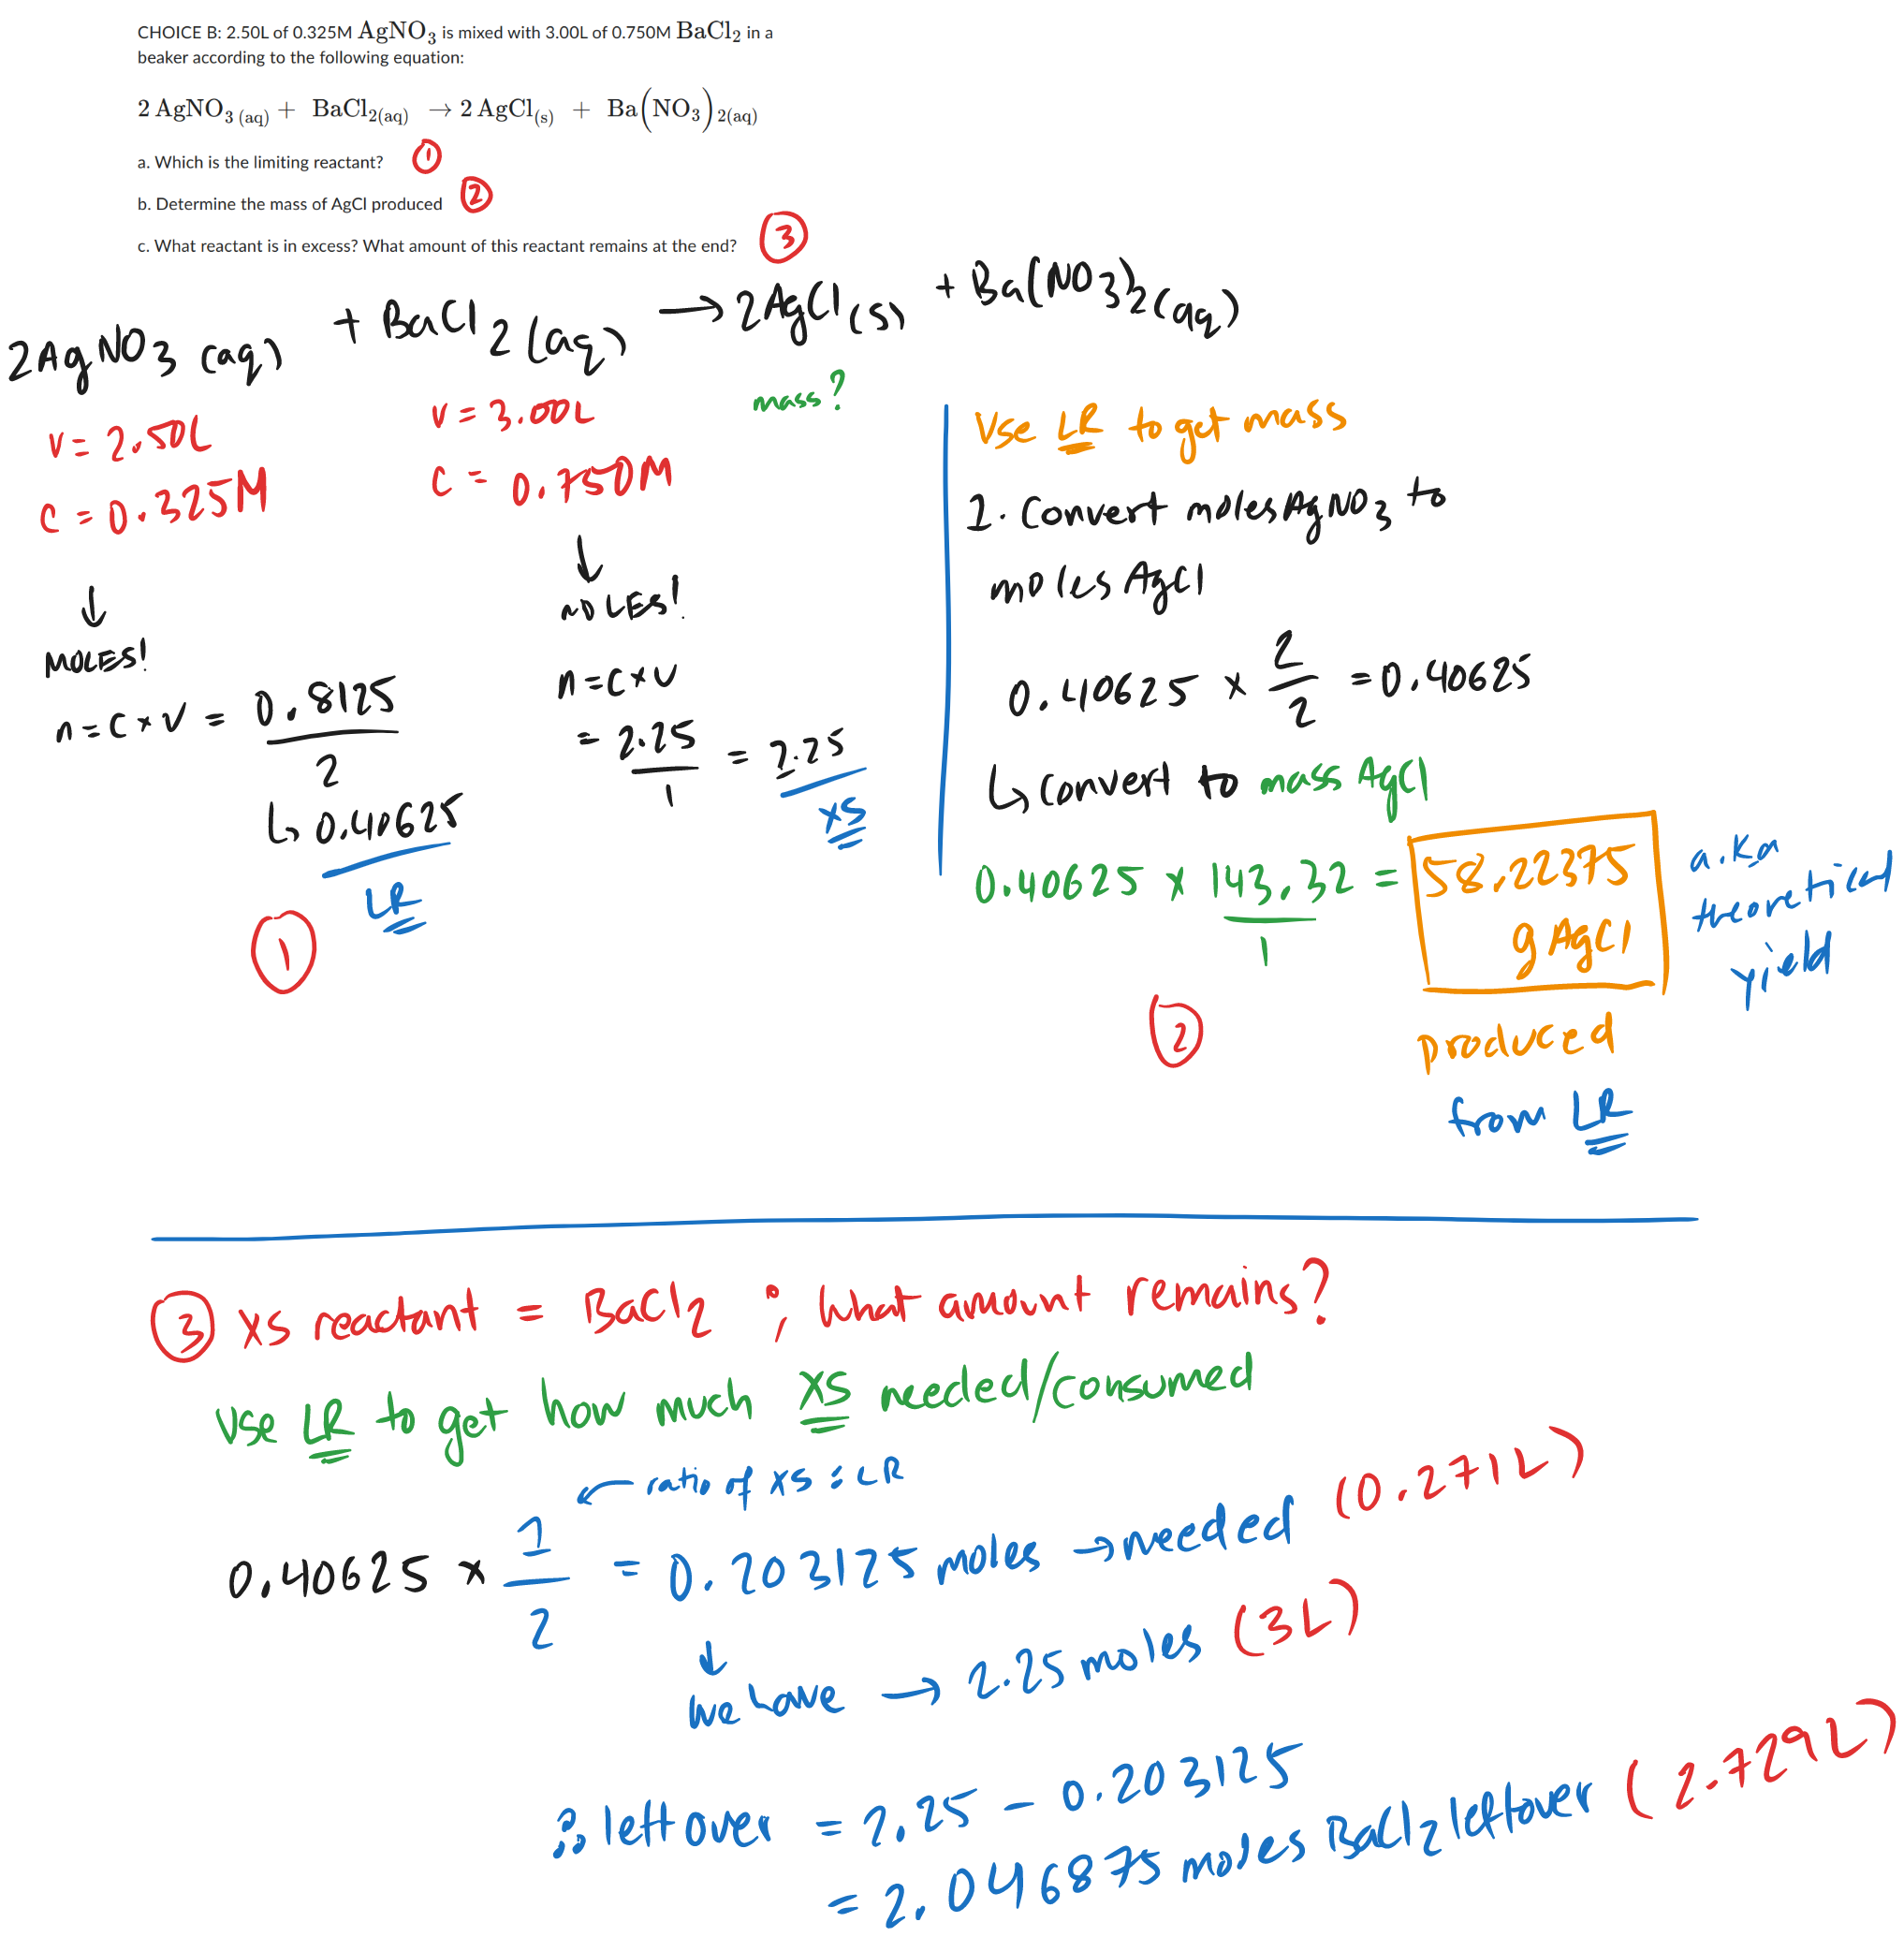 CHOICE B: 2.50L of 0.325M AgNO₃ is mixed with 3.00L of 0.750M BaCl₂ in a
beaker according to the following equation:
2 AgNO₃ (aq) + BaCl₂(aq) → 2 AgCl(s) + Ba(NO₃)₂(aq)
a. Which is the limiting reactant? ①
b. Determine the mass of AgCl produced ②
c. What reactant is in excess? What amount of this reactant remains at the end? ③
2AgNO₃ (aq) + BaCl₂ (aq) → 2AgCl(s) + Ba(NO₃)₂(aq)
V = 2.50L
C = 0.325M
↓
MOLES!
n = C × V = 0.8125/2
↳ 0.40625
LR
①
V = 3.00L
C = 0.750M
↓
MOLES!
n = C × V
= 2.25/1 = 2.25
XS
mass?
Use LR to get mass
1. Convert moles AgNO₃ to
moles AgCl
0.40625 × 2/2 = 0.40625
↳ convert to mass AgCl
0.40625 × 143.32/1 = 58.22375
g AgCl
a.k.a
theoretical
yield
②
produced
from LR
③ XS reactant = BaCl₂ ; What amount remains?
Use LR to get how much XS needed/consumed
← ratio of XS : LR
0.40625 × 1/2 = 0.203125 moles → needed (0.271L)
↓
we have → 2.25 moles (3L)
∴ left over = 2.25 - 0.203125
= 2.046875 moles BaCl₂ leftover (2.729L)